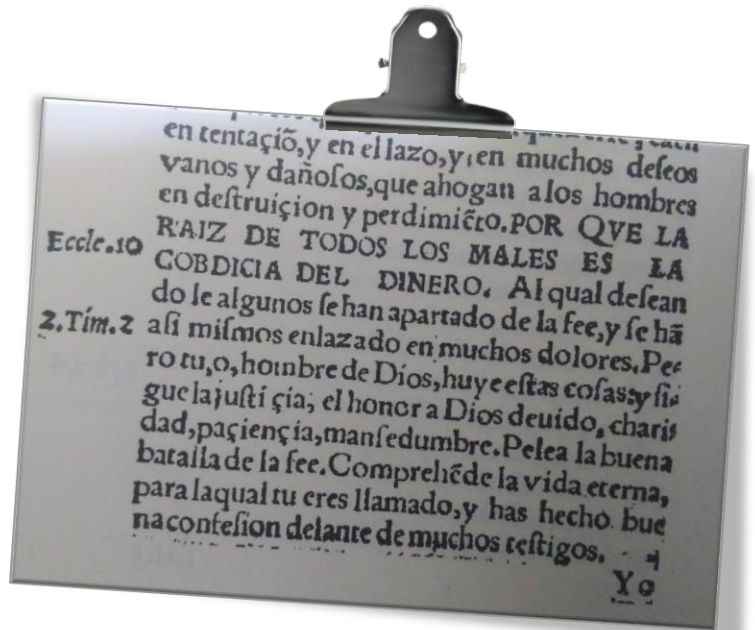 en tentaçiõ,y en el lazo,y en muchos deſeos
vanos y dañoſos,que ahogan alos hombres
en deſtruiçion y perdimiẽto.POR QVE LA
Eccle.10 RAIZ DE TODOS LOS MALES ES LA
COBDICIA DEL DINERO. Al qual deſean
do le algunos ſe han apartado de la fee,y ſe hã
2.Tim.2 aſi miſmos enlazado en muchos dolores.Pe-
ro tu,o,hombre de Dios,huye eſtas coſas:y ſi-
gue la juſtiçia, el honor a Dios deuido, chari
dad,paçiençia,manſedumbre.Pelea la buena
batalla de la fee.Comprehẽde la vida eterna,
para laqual tu eres llamado,y has hecho bue
na confeſion delante de muchos teſtigos.
Yo